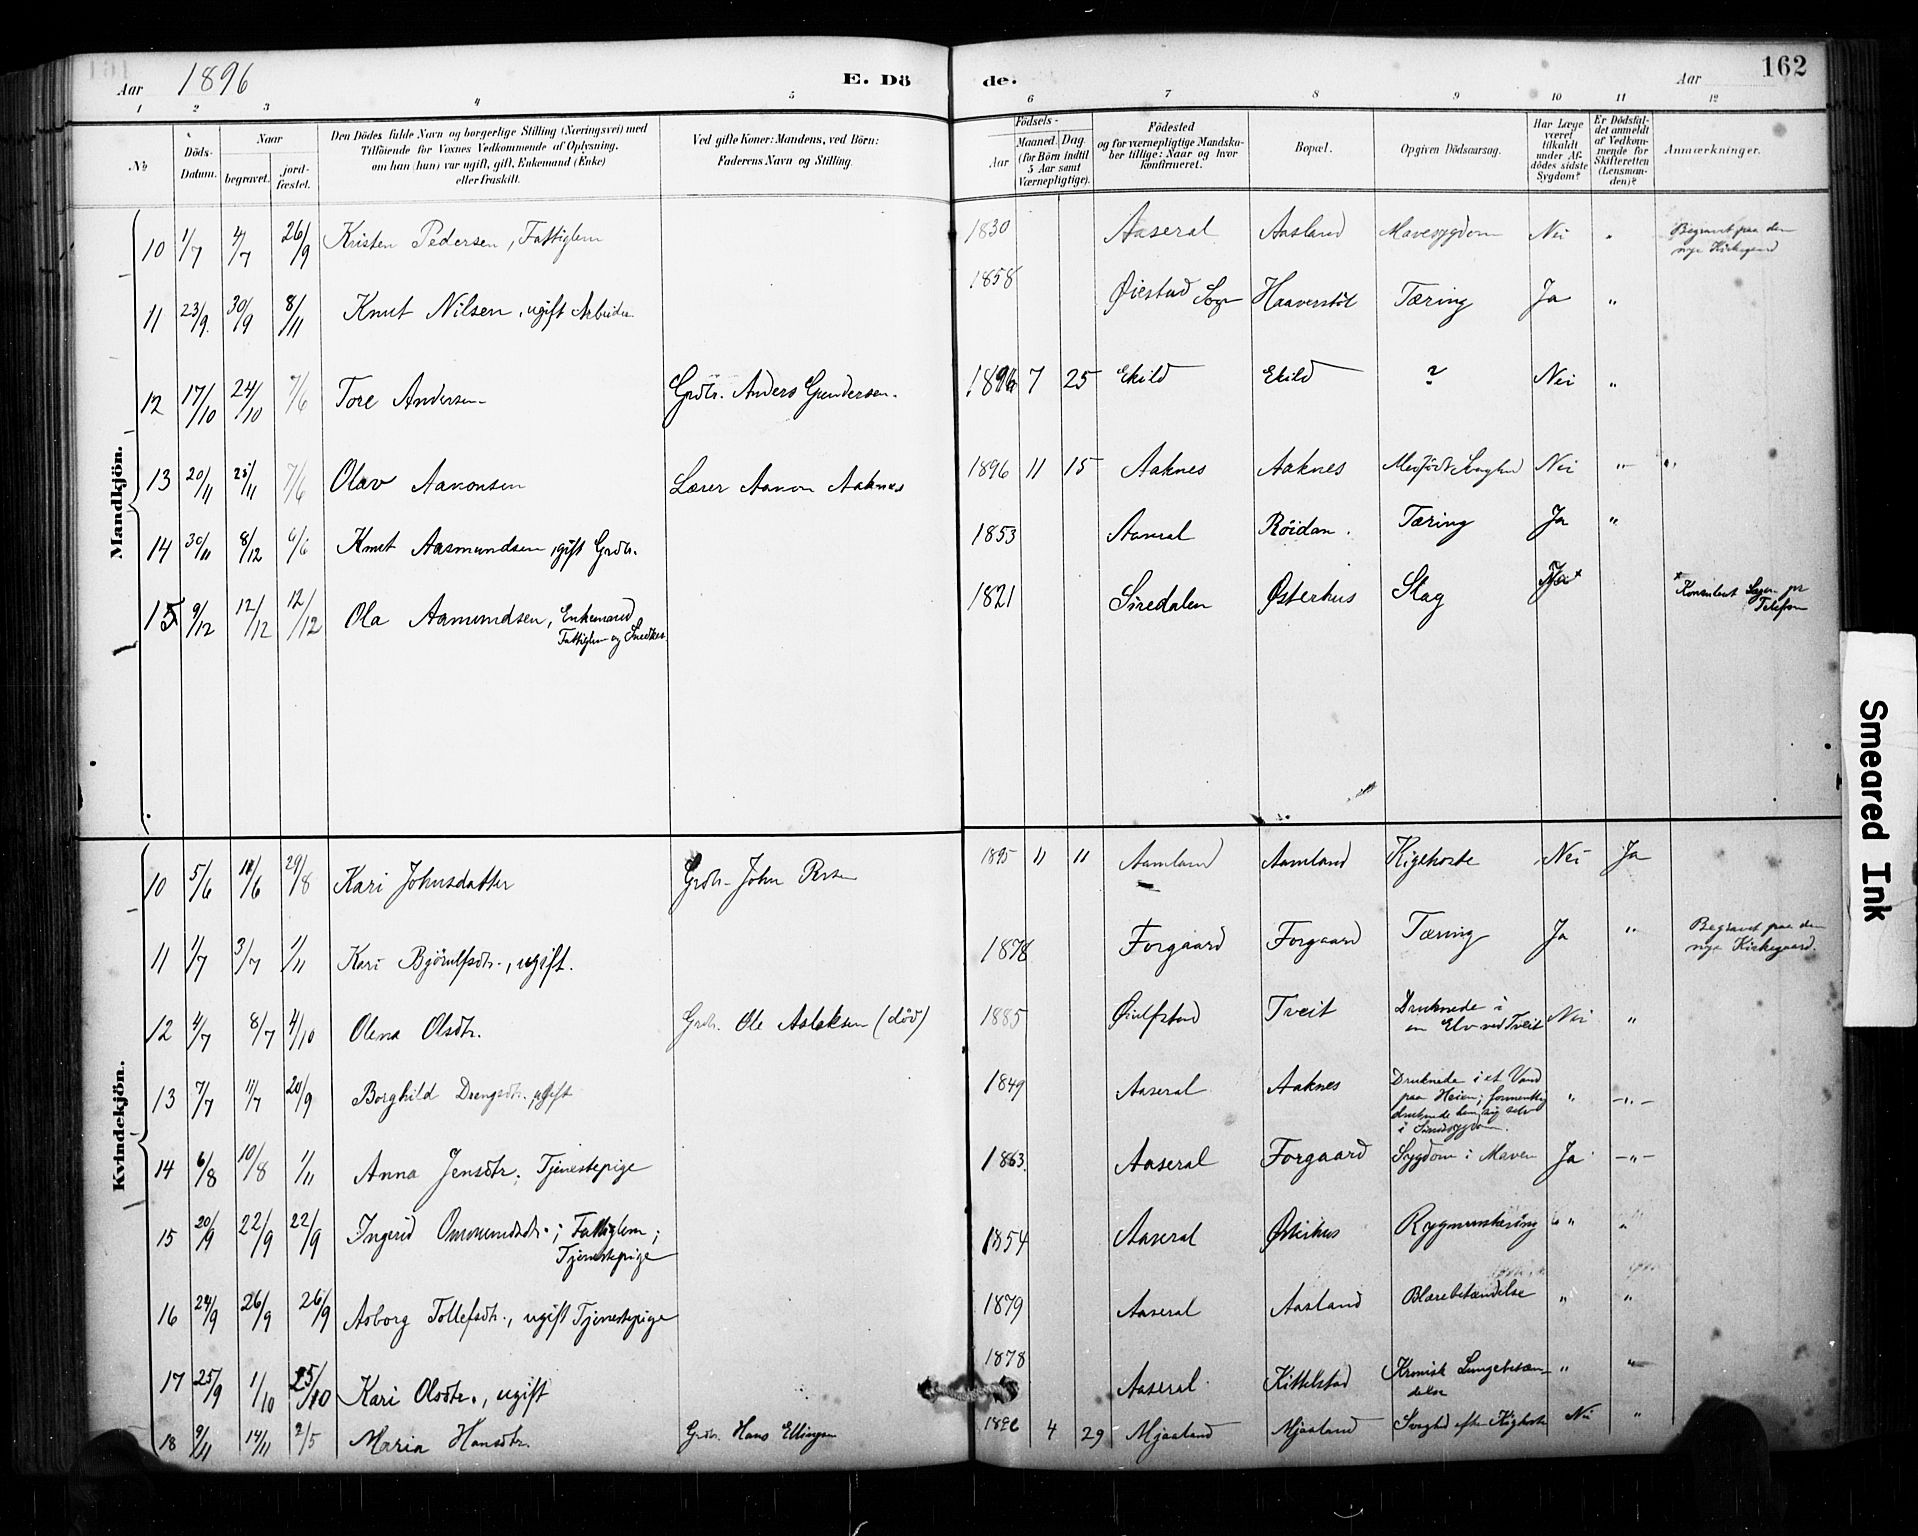 Aar 1896 E. Dö de. Aar 162
1 2 3 4 5 6 7 8 9 10 11 12
No
Döds-Datum.
Naar
begravet.
jord-fæstet.
Den Dödes fulde Navn og borgerlige Stilling (Næringsvei) med
Tilföiende for Voxnes Vedkommende af Oplysning,
om han (hun) var ugift, gift, Enkemand (Enke)
eller fraskilt.
Ved gifte Koner: Mandens, ved Börn:
Faderens Navn og Stilling.
Födsels-
Aar
Maaned. Dag.
(for Börn indtil
5 Aar samt
Værnepligtige).
Födested
og for værnepligtige Mandska-
ber tillige: Naar og hvor
konfirmeret.
Bopæl.
Opgiven Dödsaarsag.
Har Læge
været
tilkaldt
under Af-
dödes sidste
Sygdom?
Er Dödsfal-
det anmeldt
af Vedkom-
mende for
Skifteretten
(Lensman-
den)?
Anmærkninger.
Mandkjön.
10 1/7 4/7 26/9 Kristen Pedersen, Fattiglem 1830 Aaseral Aasland Mavesygdom Nei " Begravet paa den
nye Kirkegaard
11 23/9 30/9 8/11 Knut Nilsen, ugift Arbeider 1858 Øiestad Sogn Haaverstöl Tæring Ja "
12 17/10 24/10 7/6 Tore Andersen Grdbr. Anders Gundersen. 1896 7 25 Ekild Ekild ? Nei "
13 20/11 25/11 7/6 Olav Aanonsen Lærer Aanon Aaknes 1896 11 15 Aaknes Aaknes Medfödt Svaghed Nei "
14 30/11 8/12 6/6 Knut Aasmundsen, gift Grdbr. 1853 Aaseral Röidan. Tæring Ja "
15 9/12 12/12 12/12 Ola Aamundsen, Enkemand,
Fattiglem og Snedker 1821 Siredalen Østerhus Slag Ja x x Konsulent Lægen pr
Telefon
Kvindekjön.
10 5/6 11/6 29/8 Kari Johnsdatter Grdbr. John Persen 1895 11 11 Aamland Aamland Kigehoste Nei Ja
11 1/7 3/7 1/11 Kari Björulfsdtr., ugift. 1878 Forgaard Forgaard Tæring Ja " Begravet paa den
nye Kirkegaard.
12 4/7 8/7 4/10 Olena Olsdtr. Grdbr. Ole Aslaksen (död) 1885 Øiulfstad Tveit Druknede i
en Elv ved Tveit Nei "
13 7/7 11/7 20/9 Borghild Drengsdtr. ugift 1849 Aaseral Aaknes Druknede i et Vand
paa Heien; formentlig
druknede hun sig selv
i Sindssygdom. " - " -
14 6/8 10/8 1/11 Anna Jensdtr; Tjenestepige 1863. Aaseral Forgaard Sygdom i Maven Ja - " -
15 20/9 22/9 22/9 Ingerid Ommundsdtr.; Fattiglem;
Tjenestepige 1854 Aaseral Østerhus Rygmarvstæring " "
16 24/9 26/9 26/9 Asborg Tollefsdtr., ugift Tjenestepige 1879 Aaseral Aasland Blærebetændelse " "
17 25/9 1/10 25/10 Kari Olsdtr., ugift 1878 Aaseral Kittelstad Kronisk Lungebetæn-
delse " "
18 9/11 14/11 2/5 Maria Hansdtr. Grdbr. Hans Ellingsen 1896 4 29 Mjaaland Mjaaland Svaghed efter Kighoste Nei "
Smeared Ink